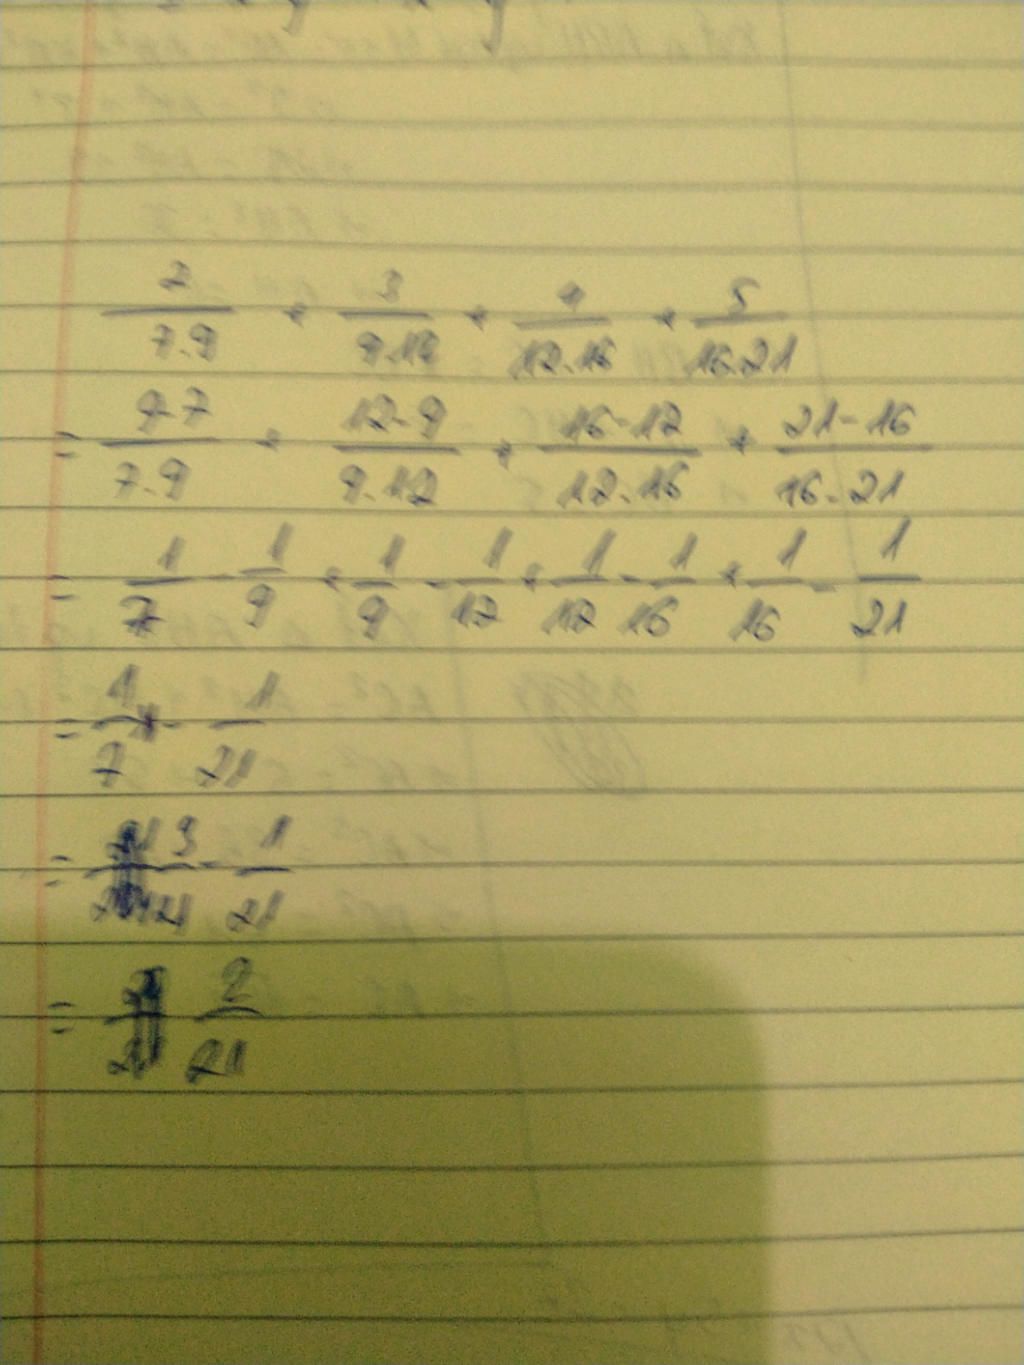 2/7.9 + 3/9.12 + 4/12.16 + 5/16.21
= 9-7/7.9 + 12-9/9.12 + 16-12/12.16 + 21-16/16.21
= 1/7 - 1/9 + 1/9 - 1/12 + 1/12 - 1/16 + 1/16 - 1/21
= 1/7 - 1/21
= 3/21 - 1/21
= 2/21